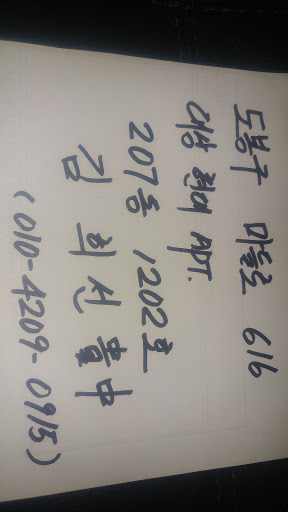 도봉구 마들로 616
현대 APT.
207동 1202호
김 희 선
(010-4209-0915)